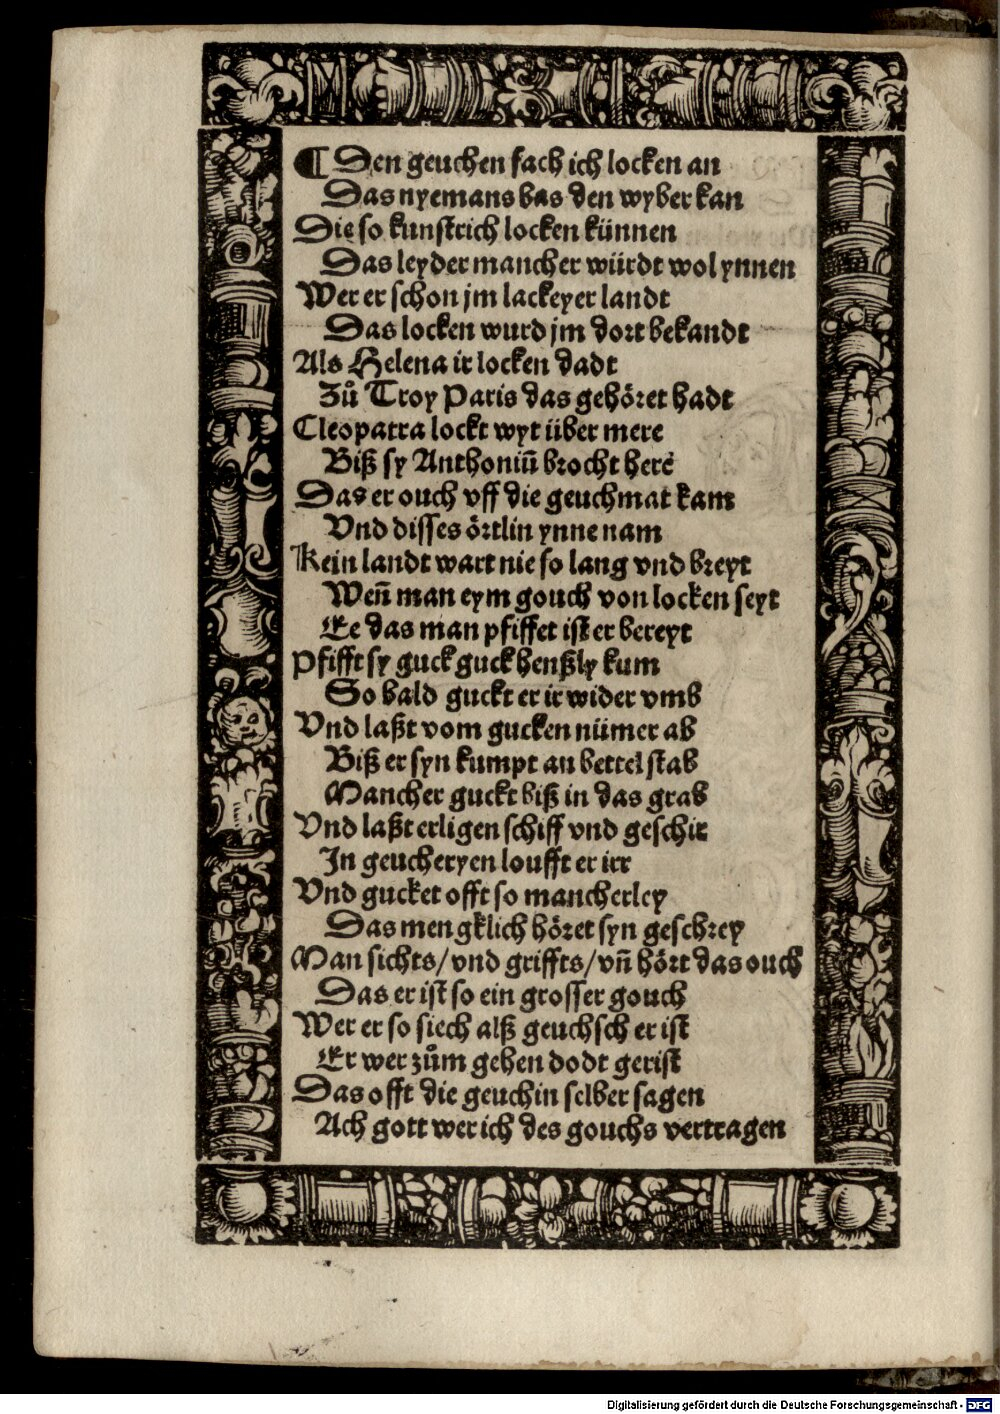 ¶ Den geuchen fach ich locken an
Das nyemans bas den wyber kan
Die so kunstrich locken künnen
Das leyder mancher würdt wol ynnen
Wer er schon jm lackeyer landt
Das locken wurd jm dort bekandt
Als Helena ir locken dadt
Zů Troy Paris das gehöret hadt
Cleopatra lockt wyt über mere
Biß sy Anthoniū brocht herē
Das er ouch vff die geuchmat kam
Vnd disses örtlin ynne nam
Kein landt wart nie so lang vnd breyt
Weñ man eym gouch von locken seyt
Ee das man pfiffet ist er bereyt
Pfifft sy guck guck henßly kum
So bald guckt er ir wider vmb
Vnd laßt vom gucken nümer ab
Biß er syn kumpt an bettel stab
Mancher guckt biß in das grab
Vnd laßt er ligen schiff vnd geschir
In geucheryen loufft er irr
Vnd gucket offt so mancherley
Das mengklich höret syn geschrey
Man sichts/vnd griffts/vñ hört das ouch
Das er ist so ein grosser gouch
Wer er so siech alß geuchsch er ist
Er wer zům gehen dodt gerist
Das offt die geuchin selber sagen
Ach gott wer ich des gouchs vertragen
Digitalisierung gefördert durch die Deutsche Forschungsgemeinschaft - DFG